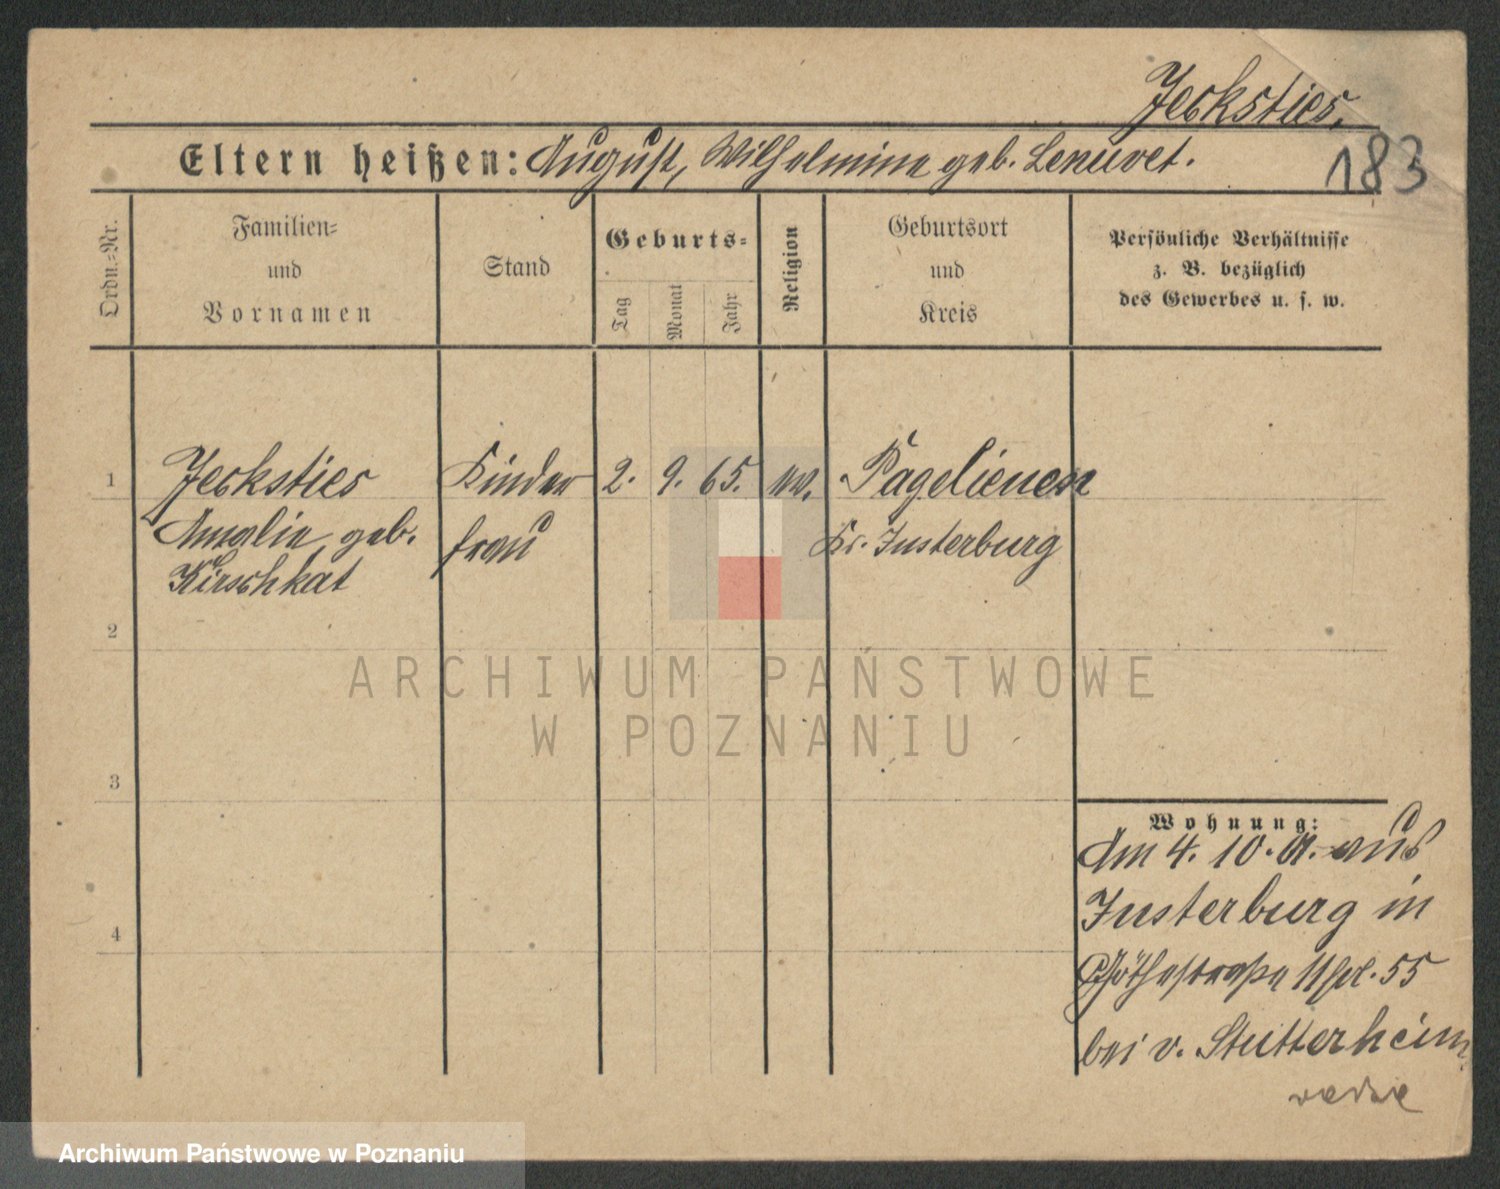 Jecksties,
Eltern heißen: August, Wilhelmine geb. Lenuvet.
183
Ordn.-Nr.
Familien-
und
Vornamen
Stand
Geburts-
Tag
Monat
Jahr
Religion
Geburtsort
und
Kreis
Persönliche Verhältnisse
z. B. bezüglich
des Gewerbes u. s. w.
1
Jecksties
Amalie, geb.
Kirschkat
Kinder
frau
2. 9. 65.
Pagelienen
Kr. Insterburg
2
3
4
Wohnung:
Am 4. 10. 01. aus
Insterburg in
Göthestraße 11 55
bei v. Stutterheim
ARCHIWUM PAŃSTWOWE
W POZNANIU
Archiwum Państwowe w Poznaniu